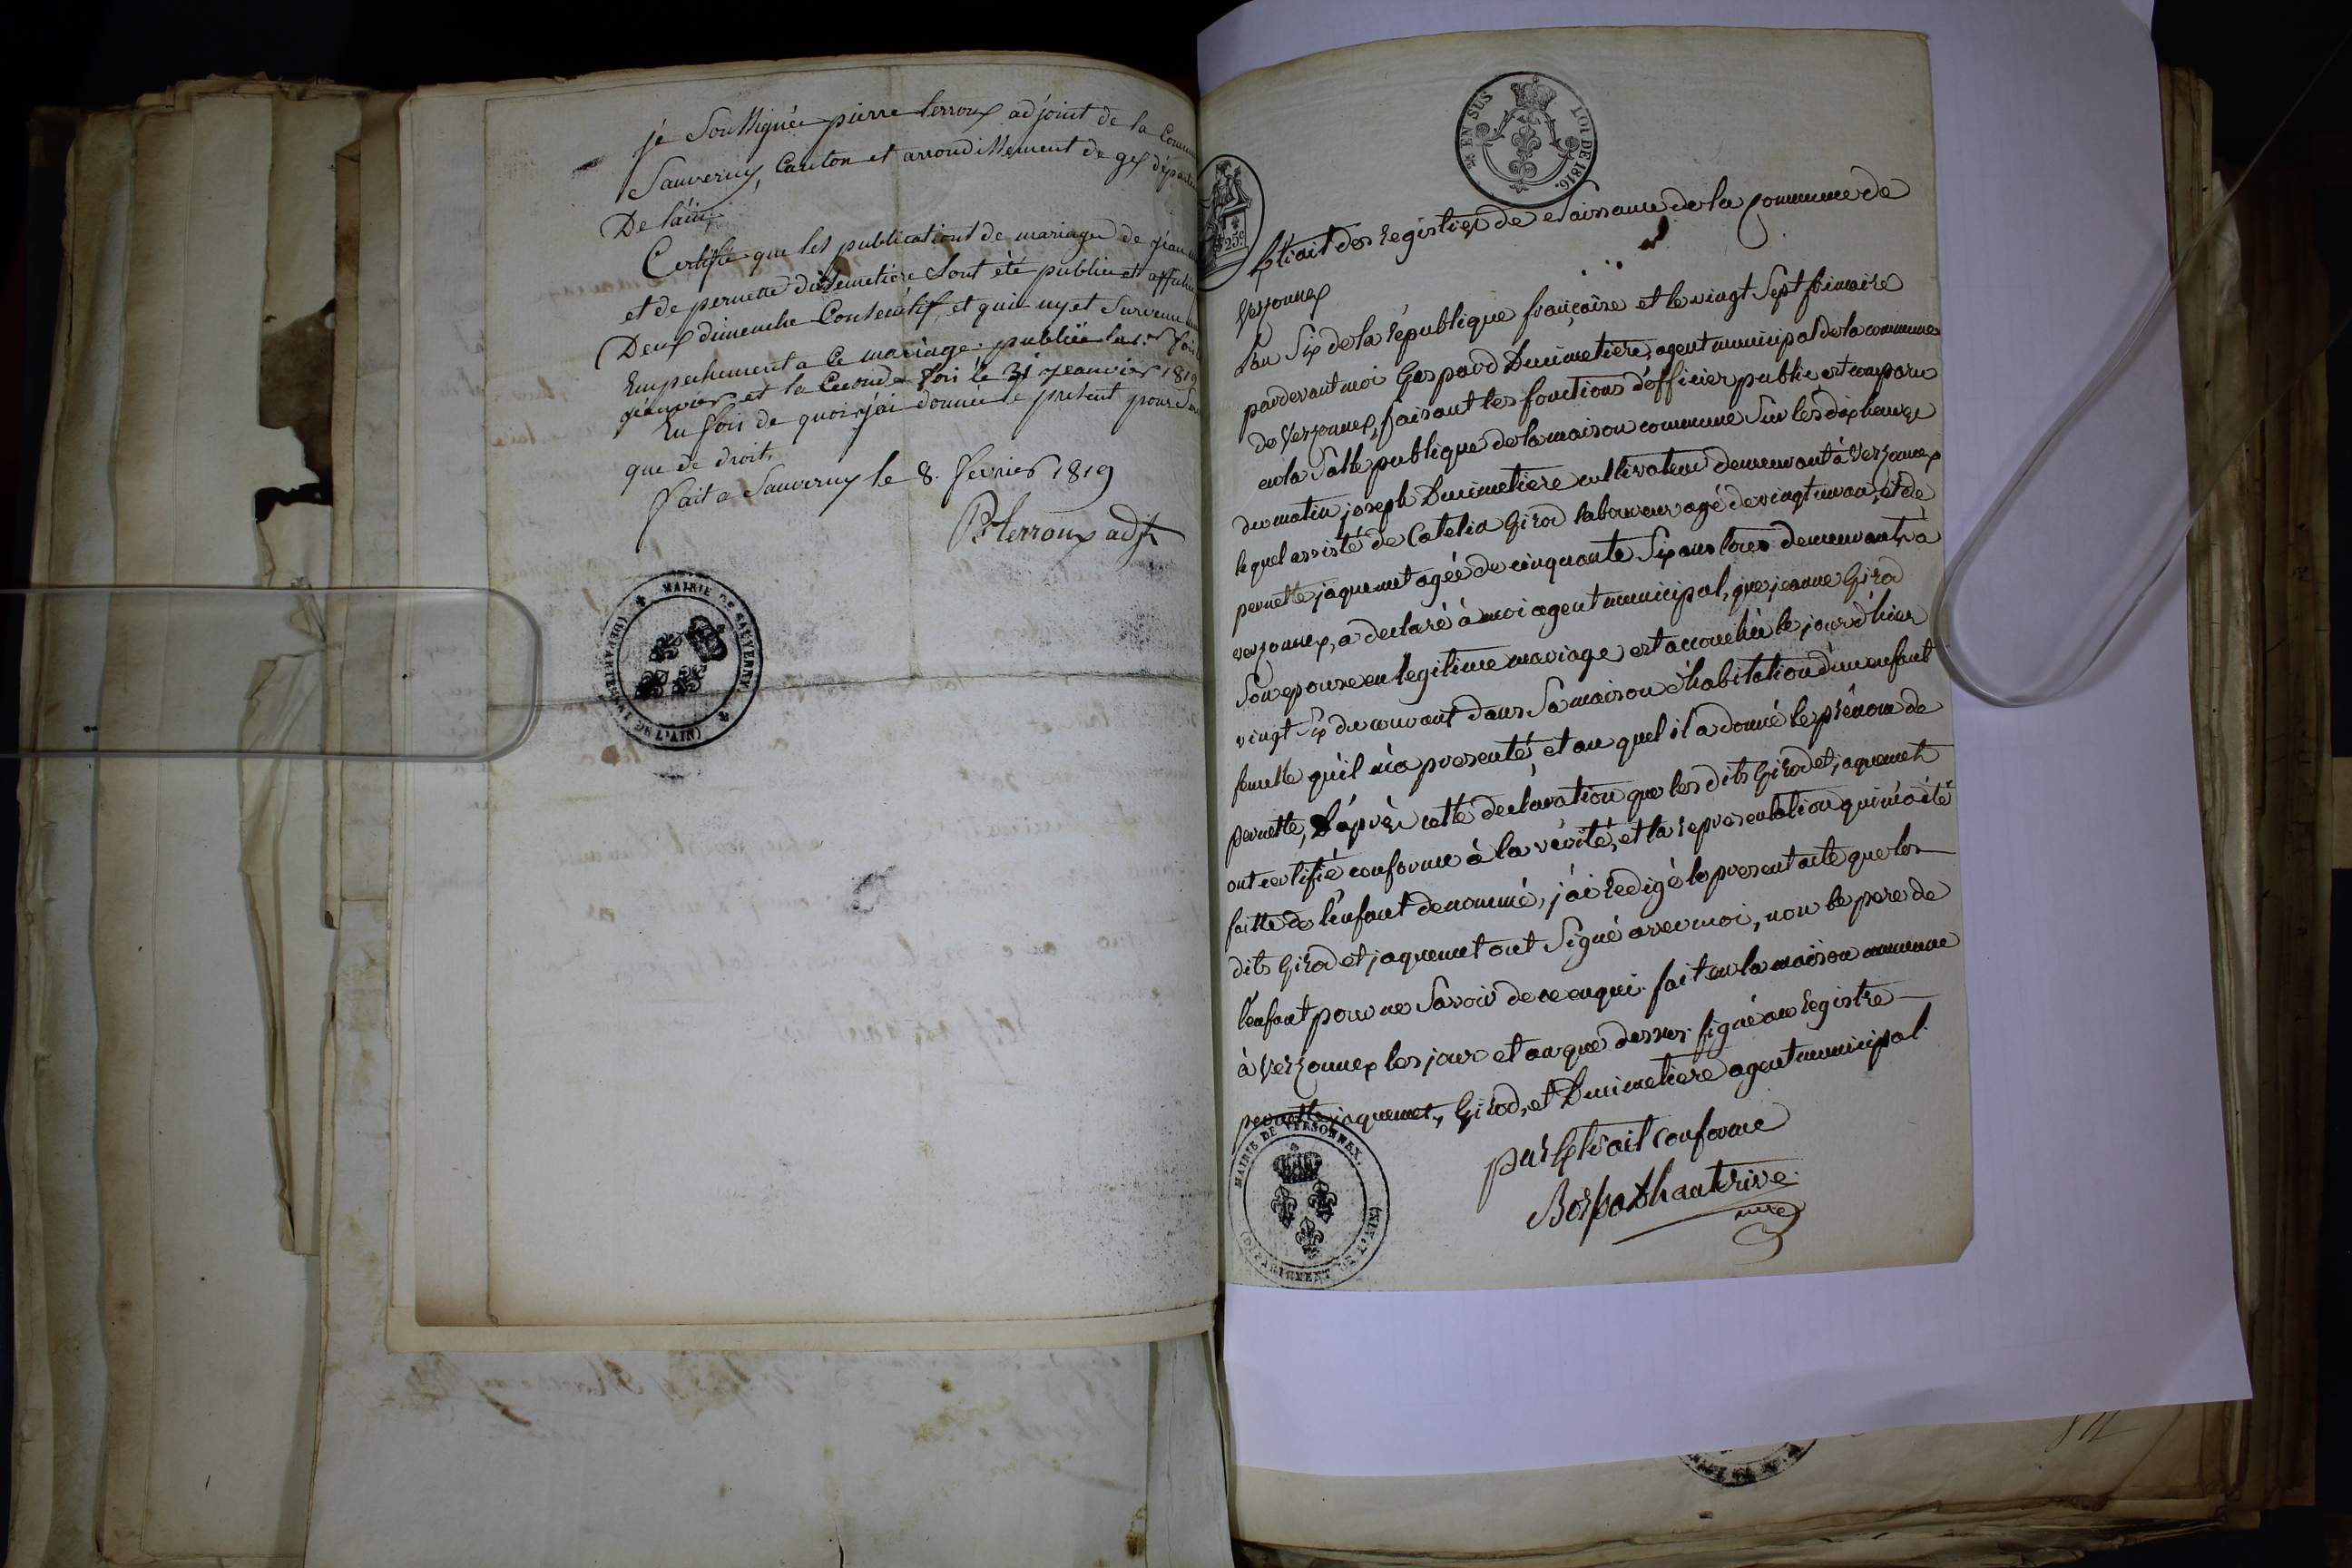 je Soussignée pierre terroux adjoint de la Commu
Sauverny, Canton et arrondissement de gex départe
De l'ain.
Certifie que les publications de mariage de jean
et de pernette dusemetiere Sont été publiée et affichée
Deux dimenche Consécutif, et quil ny et Survenu
Empechement a Ce mariage. publiée la 1.er fois
jeanvier et la Ceconde fois le 31 jeanvier 1819
En foir de quoi j'ai donnée le présent pour
que de droit.
fait a Sauverny le 8. fevrier 1819
P. terroux adjt
MAIRIE DE SAUVERNY.
(DÉPARTEMENT DE L'AIN)
EN SUS
LOI DE 1816.
25c
Extrait des registres de Naissance de la Commune de
Verzonnex
L'an Six de la république françaîse et le vingt Sept frimaire
pardevant moi Gaspard Ducimetière, agent municipal de la commune
de Verzonnex, faisant les fonctions d'officier public est comparu
en la Salle publique de la maison commune Sur les dix heures
du matin joseph Ducimetiere cultivateur demeurant à Verzonnex
lequel assisté de Catelin Girod laboureur agé de vingt un an, et de
pernette jaquemet agée de cinquante Six ans tous demeurants à
verzonnex, a declaré à moi agent municipal, que jeanne Girod
Son epouse en legitime mariage est accouchée le jour d'hier
vingt Six du courant dans Sa maison d'habitation d'un enfant
femelle qu'il m'a presenté, et au quel il a donné le prénom de
pernette, D'après cette declaration que les dits Girod et jaquemet
ont certifié conforme à la vérité, et la representation qui m'a été
faitte de l'enfant denommé, j'ai redigé le present acte que les
dits Girod et jaquemet ont Signé avec moi, non le pere de
l'enfant pour ne Savoir de ce enqui. fait en la maison commune
à Verzonnex les jour et an que dessus. signé au registre
pernette jaquemet, Girod, et Ducimetiere agent municipal.
par Extrait conforme
MAIRIE DE VERSONNEX.
(DÉPARTEMENT DE L'AIN)